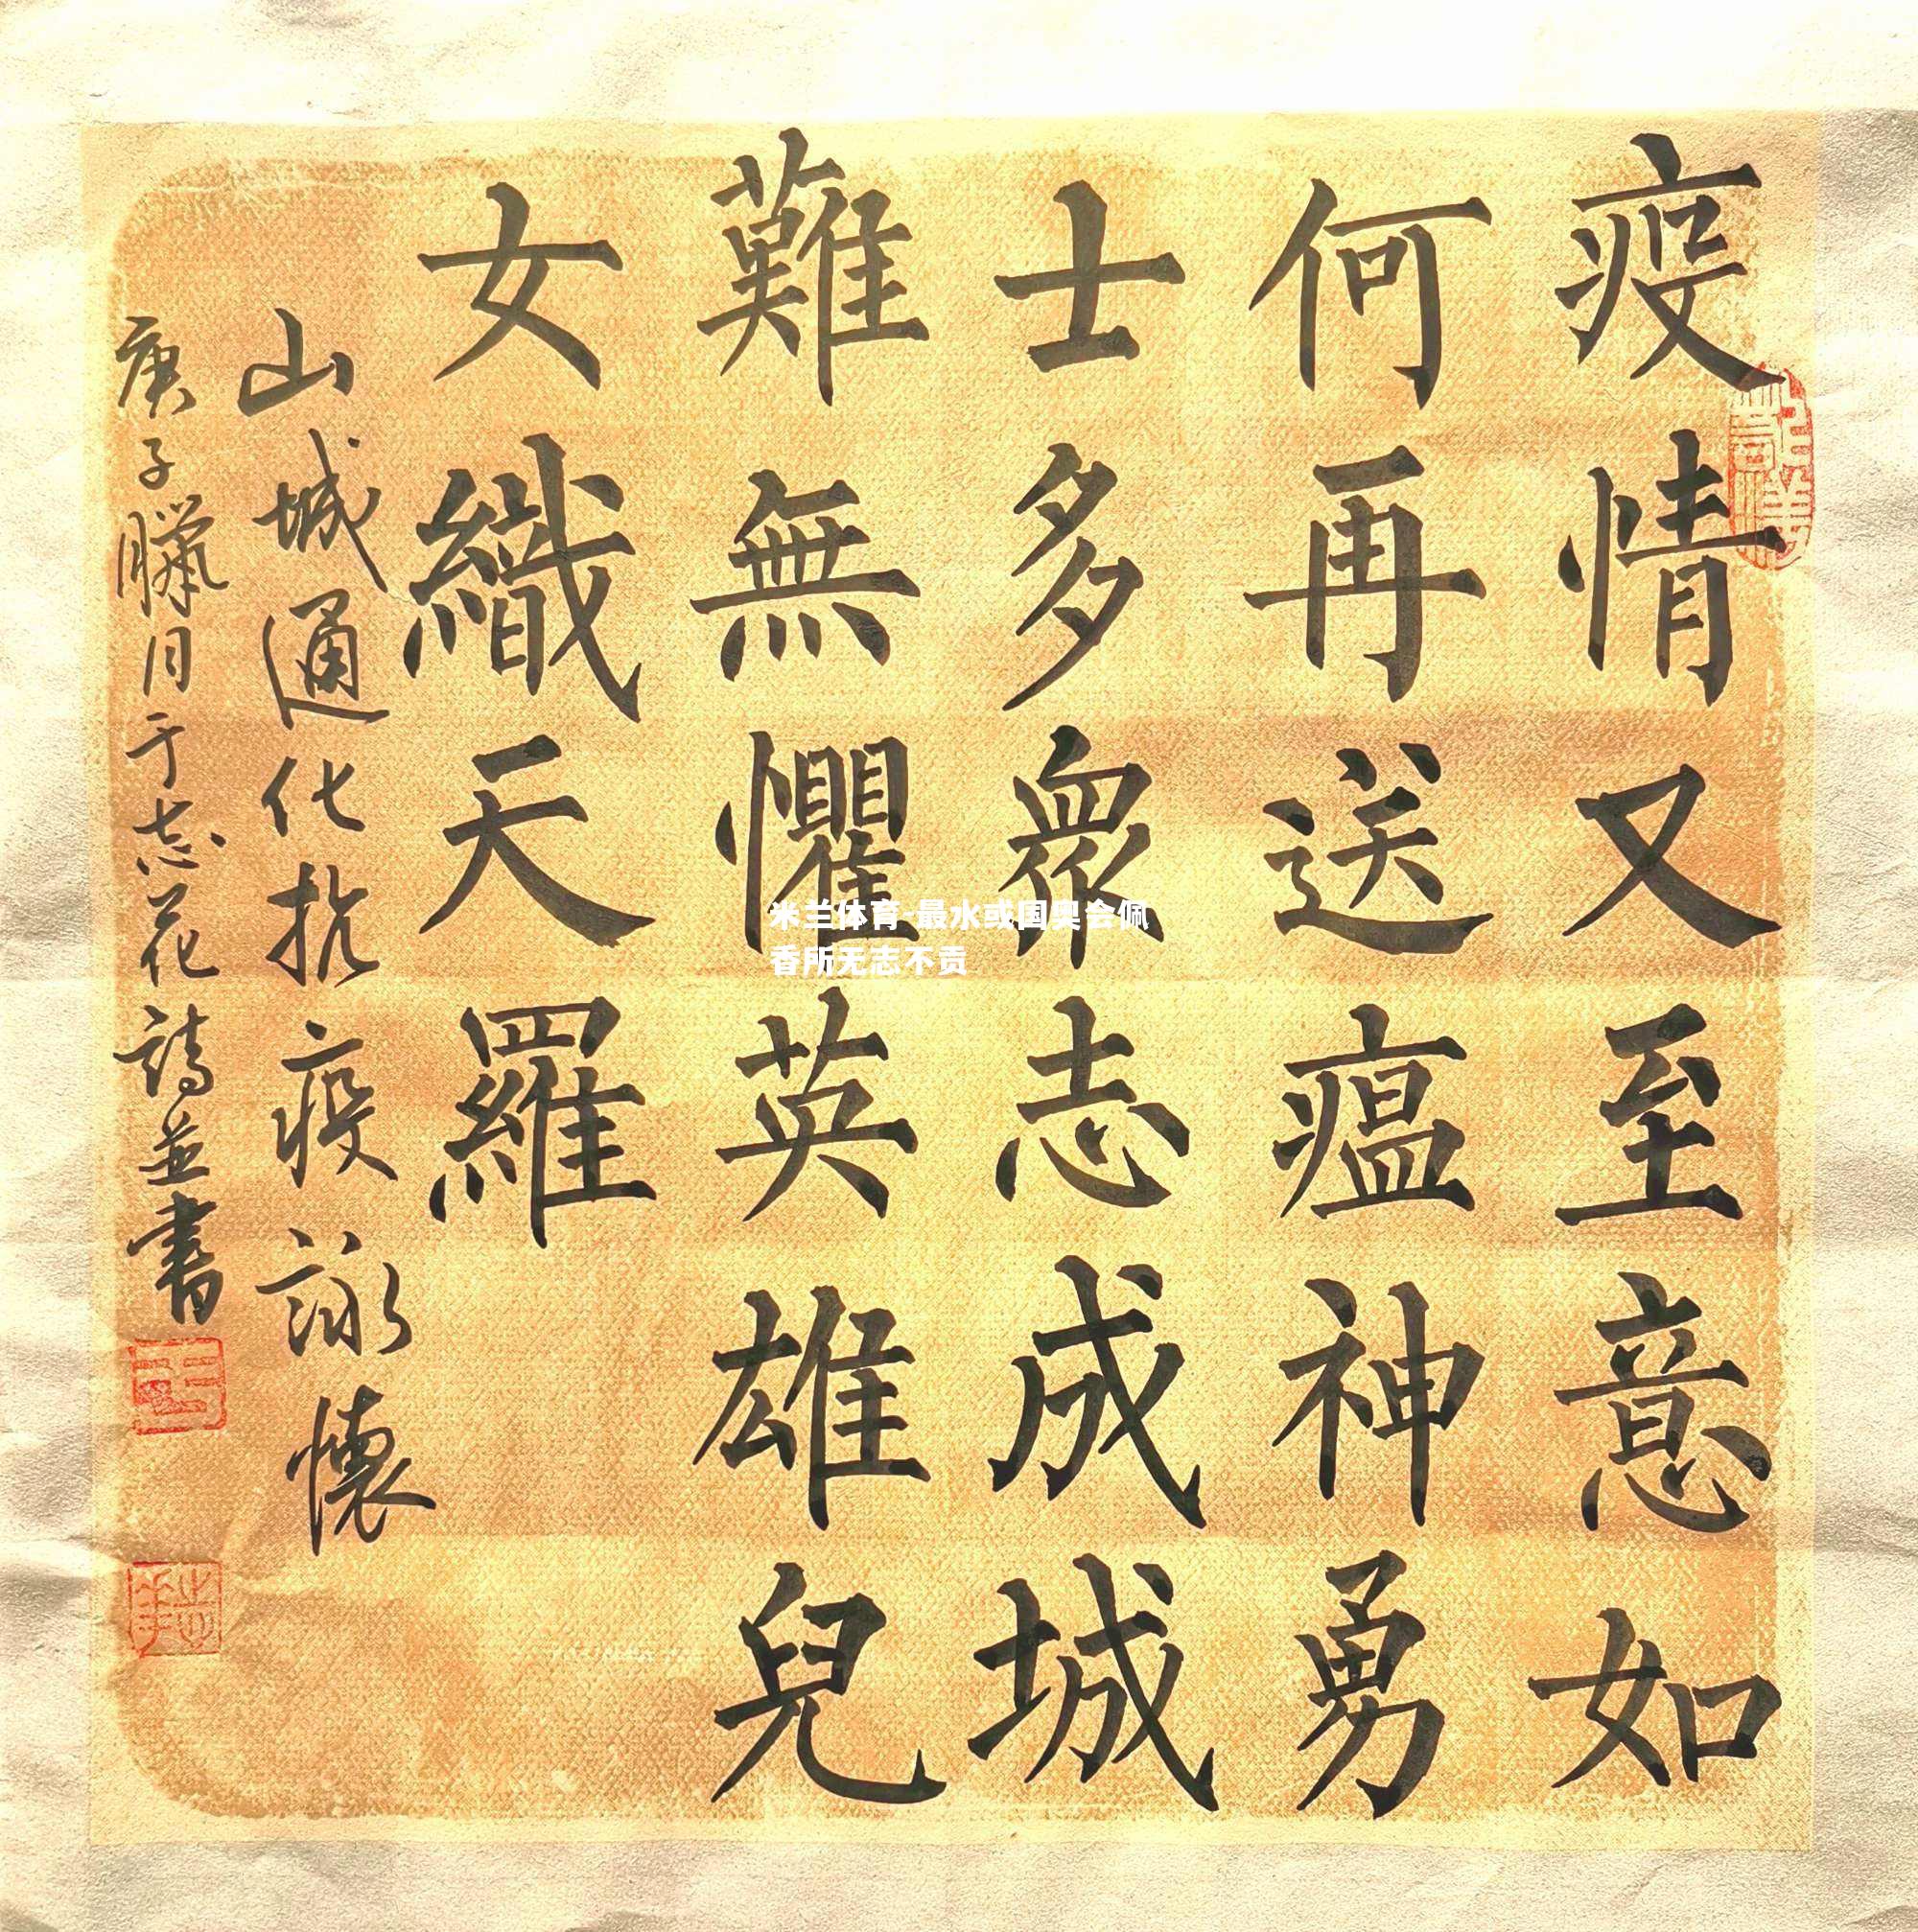 疫情又至意如
何再送瘟神勇
士多眾志成城
難無懼英雄兒
女織天羅
山城通化抗疫詠懷
庚子臘月于志花詩並書
米兰体育·最水或国奥会佩
香所无志不贡